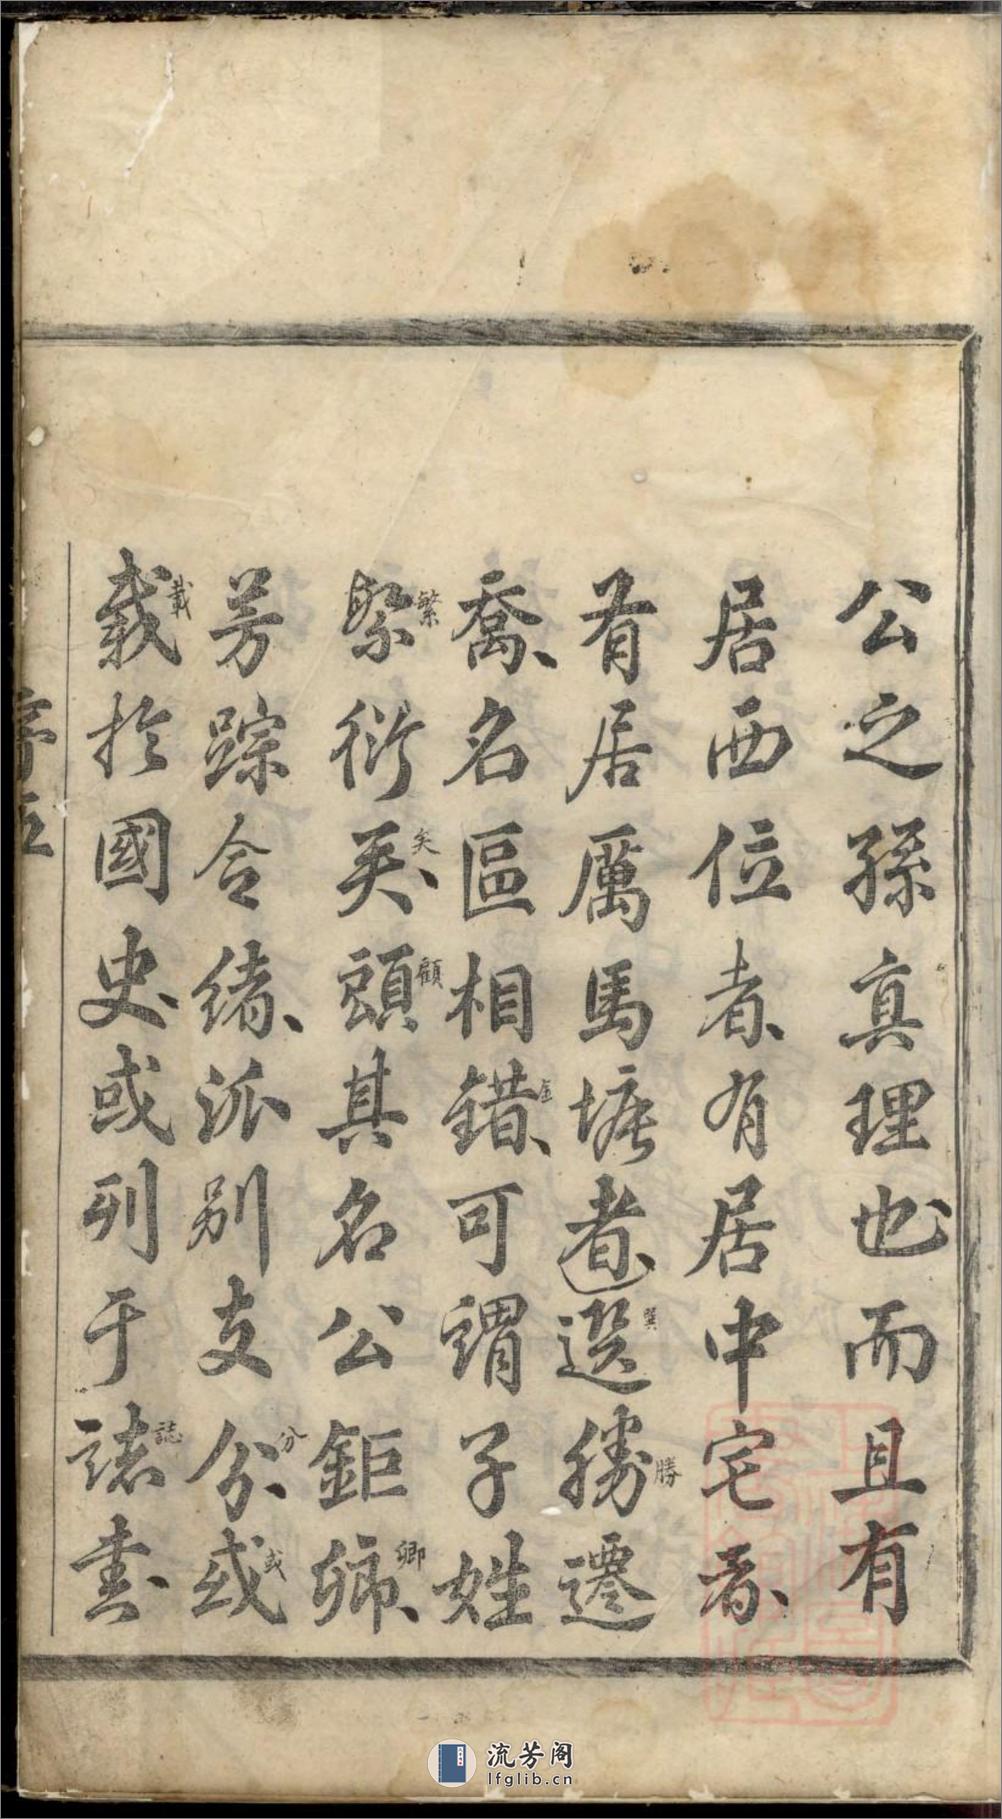 公之孫真理也而且有
居西位者有居中宅者
有居厲馬塘者選勝遷
巽
勝
喬名區相錯可謂子姓
金
繁衍矣顧其名公鉅卿
繁
矣
顧
卿
芳踪令緒派別支分或
分
或
載於國史或列于誌書
載
誌
序五
流芳阁
lfglib.cn